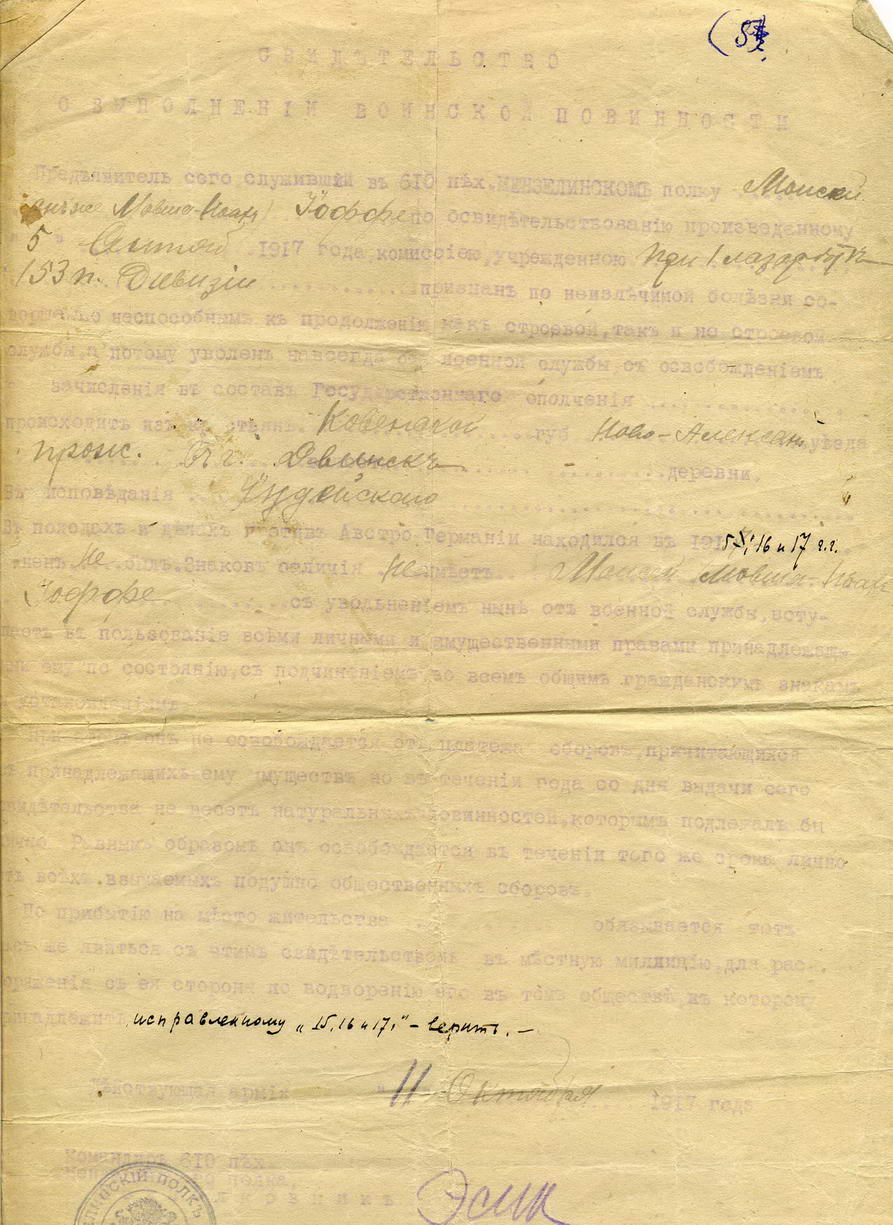 СВИДѢТЕЛЬСТВО
О ВЫПОЛНЕНІИ ВОИНСКОЙ ПОВИННОСТИ
Предъявитель сего, служившій въ 610 пѣх. МЕНЗЕЛИНСКОМЪ полку Моисей
онъ же Мовша-Іоаан) Іоффе по освидѣтельствованію произведенному
" 5 " 1917 года, комиссіею, учрежденною при 1 лазар
153 п. Дивизіи ............ признанъ по неизлѣчимой болѣзни со-
неспособнымъ къ продолженію какъ строевой, такъ и не строевой
службы, а потому уволенъ навсегда отъ военной службы, съ освобожденіемъ
зачисленія въ составъ Государственнаго ополченія ............
происходитъ изъ Ковенской .....губ. Ново-Алексан уѣзда
проис. въ г. Двинскъ .......... деревни,
Вѣроисповѣданія ... Іудейскаго ............
Въ походахъ и дѣлахъ противъ Австро-Германіи находился въ 1915, 16 и 17 г.г.
ненъ не былъ. Знаковъ отличія не имѣетъ.... Моисей Мовша-Іоаан
Іоффе ............ съ увольненіемъ нынѣ отъ военной службы, всту-
паетъ въ пользованіе всѣми личными и имущественными правами принадлежащи-
ми ему по состоянію, съ подчиненіемъ во всемъ общимъ гражданскимъ
и установленіямъ
При этомъ онъ не освобождается отъ платежа сборовъ, причитающихся
съ принадлежащихъ ему имуществъ но въ теченіи года со дня выдачи сего
свидѣтельства не несетъ натуральныхъ повинностей, которымъ подлежалъ бы
лично Равнымъ образомъ онъ освобождается въ теченіи того же срока лично
отъ всѣхъ. взимаемыхъ подушно общественныхъ сборовъ.
По прибытію на мѣсто жительства ............ обязывается тотъ
часъ же явиться съ этимъ свидѣтельствомъ въ мѣстную миллицію, для рас-
поряженія съ ея стороны по водворенію его въ томъ обществѣ, къ которому
принадлежитъ. исправленному „15, 16 и 17," – верить. –
Дѣйствующая армія " 11 " Октября .... 1917 года
Командиръ 610 пѣх.
полка,
полковникъ
ПОЛКЪ